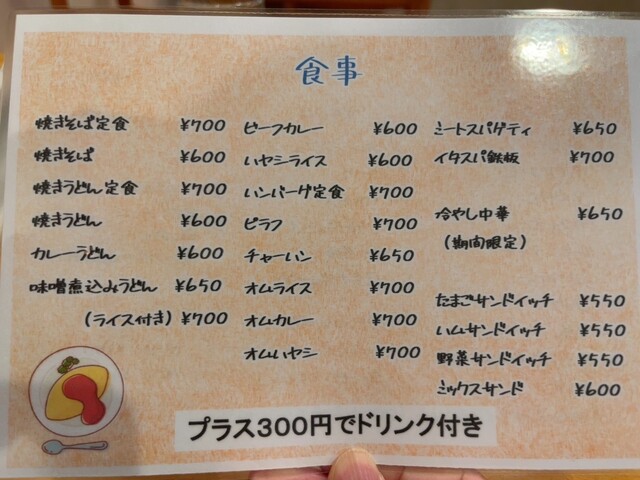 食事
焼きそば定食 ¥700
焼きそば ¥600
焼きうどん定食 ¥700
焼きうどん ¥600
カレーうどん ¥600
味噌煮込みうどん ¥650
(ライス付き) ¥700
ビーフカレー ¥600
ハヤシライス ¥600
ハンバーグ定食 ¥700
ピラフ ¥700
チャーハン ¥650
オムライス ¥700
オムカレー ¥700
オムハヤシ ¥700
ミートスパゲティ ¥650
イタスパ鉄板 ¥700
冷やし中華 ¥650
(期間限定)
たまごサンドイッチ ¥550
ハムサンドイッチ ¥550
野菜サンドイッチ ¥550
ミックスサンド ¥600
プラス300円でドリンク付き